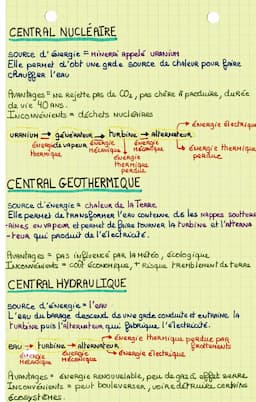 CENTRAL NUCLÉAIRE
SOURCE d'ÉNERGIE = minerai appelé URANIUM
Elle permet d'obt une grde source de chaleur pour faire
chauffer l'eau
Avantages = ne rejette pas de CO2, pas chère à produire, durée
de vie 40 ans.
Inconvénients = déchets nucléaires
énergie électrique
URANIUM → générateur → Turbine → alternateur
énergie thermique
de vapeur
énergie mécanique
énergie thermique perdue
énergie mécanique
énergie thermique perdue
CENTRAL GEOTHERMIQUE
SOURCE d'énergie = chaleur de la Terre
Elle permet de transformer l'eau contenue ds les nappes soutterr
-aines en vapeur et permet de faire tourner la turbine et l'alterna
-teur qui produit de l'électricité.
Avantages = pas influencé par la météo, écologique
Inconvénients = coût économique, + risque tremblement de terre
CENTRAL HYDRAULIQUE
SOURCE d'énergie = l'eau
L'eau du barage descend ds une grde conduite et entraine la
turbine puis l'alternateur qui fabrique l'électricité.
énergie thermique perdue par frottements
EAU → turbine → alternateur
énergie mécanique
énergie mécanique
énergie électrique
Avantages = énergie renouvelable, peu de gaz à effet serre
Inconvénients = peut bouleverser, voire détruire certains
écosystèmes.